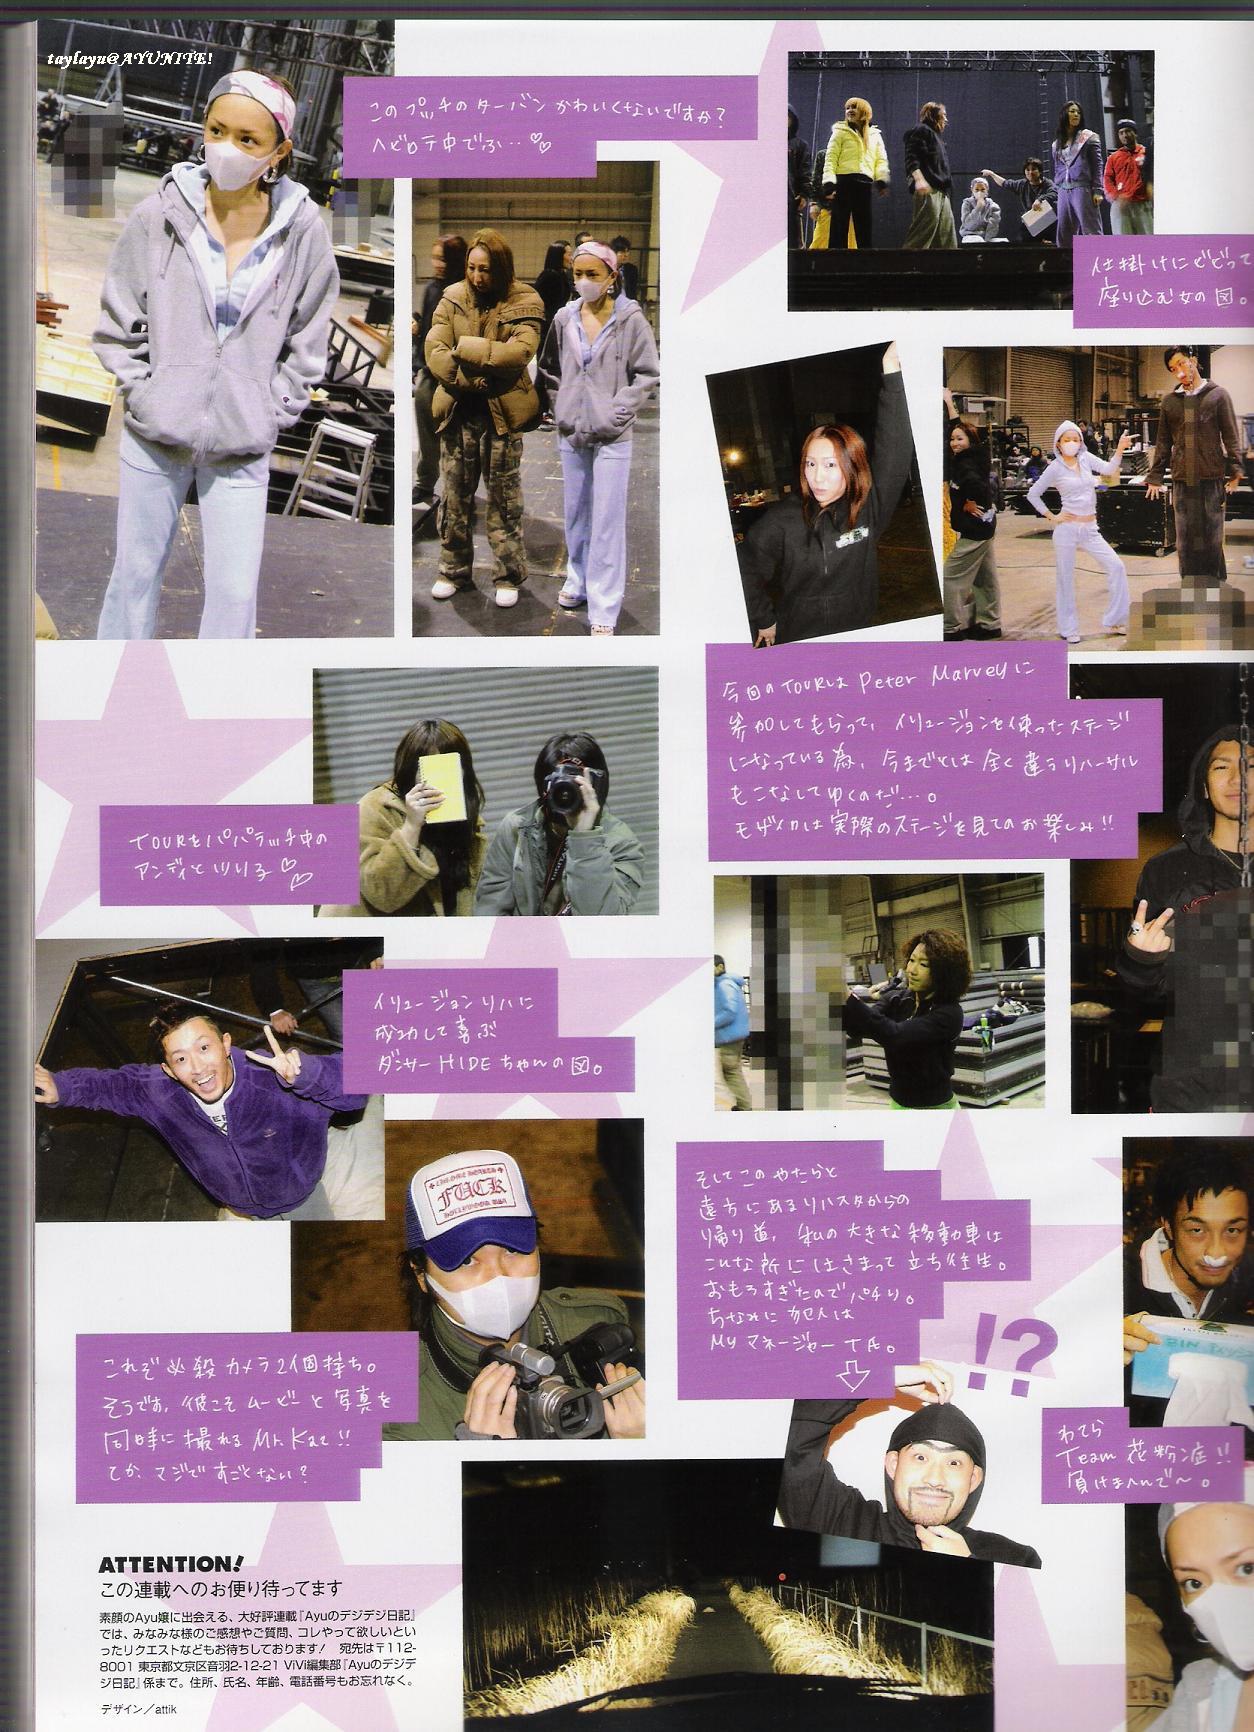 taylayu@AYUNITE!
このプッチのターバンかわいくないですか?
ヘビロテ中でふ…♡♡
仕掛けにビビって
座り込む女の図。
今回のTOURは Peter Marveyに
参加してもらって、イリュージョンを使ったステージ
になっている為、今までとは全く違うリハーサル
もこなしてゆくのだ…。
モザイクは実際のステージを見てのお楽しみ!!
TOURをパパラッチ中の
アンディとツリ子♡♡
イリュージョンリハに
成功して喜ぶ
ダンサーHIDEちゃんの図。
FUCK
HOLLYWOOD USA
そしてこのやたらと
遠方にあるリハスタからの
帰り道、私の大きな移動車は
こんな所にはさまって立ち往生。
おもろすぎたのでパチリ。
ちなみに犯人は
Myマネージャー T氏。
!?
これぞ必殺カメラ2個持ち。
そうです。彼こそムービーと写真を
同時に撮れるMr.Kaz!!
てか、マジですごくない?
わてら
Team 花粉症!!
負けまへんで〜。
ATTENTION!
この連載へのお便り待ってます
素顔のAyu嬢に出会える、大好評連載『Ayuのデジデジ日記』
では、みなみな様のご感想やご質問、コレやって欲しいとい
ったリクエストなどもお待ちしております! 宛先は〒112-
8001 東京都文京区音羽2-12-21 ViVi編集部『Ayuのデジデ
ジ日記』係まで。住所、氏名、年齢、電話番号もお忘れなく。
デザイン/attik